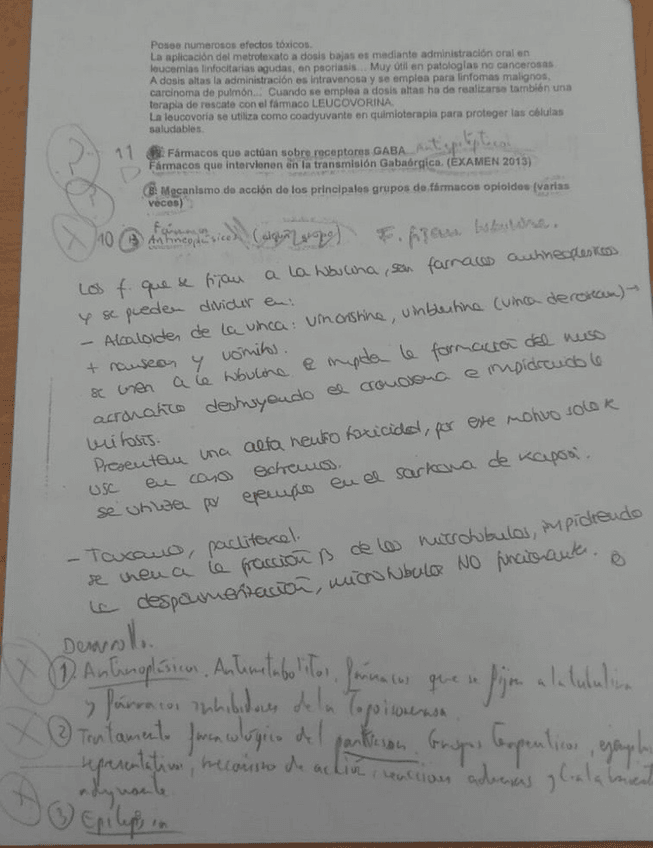 Posee numerosos efectos tóxicos.
La aplicación del metrotexato a dosis bajas es mediante administración oral en
leucemias linfocitarias agudas, en psoriasis... Muy útil en patologías no cancerosas.
A dosis altas la administración es intravenosa y se emplea para linfomas malignos,
carcinoma de pulmón... Cuando se emplea a dosis altas ha de realizarse también una
terapia de rescate con el fármaco LEUCOVORINA.
La leucovoria se utiliza como coadyuvante en quimioterapia para proteger las células
saludables.
? 11 Fármacos que actúan sobre receptores GABA
Fármacos que intervienen en la transmisión Gabaérgica. (EXAMEN 2013)
? 8. Mecanismo de acción de los principales grupos de fármacos opioides (varias
veces)
X 10 Fármacos
Antineoplásicos (algún grupo) F. fijan tubulina.
Los f. que se fijan a la tubulina, son fármacos antineoplásicos
y se pueden dividir en:
- Alcaloides de la vinca: vincristina, vinblastina (vinca) →
+ nauseas y vómitos.
se unen a la tubulina e impide la formación del huso
acromático destruyendo el e impidiendo la
mitosis.
Presentan una alta neurotoxicidad, por este motivo solo se
usc en casos extremos.
se utiliza por ejemplo en el sarkoma de kaposi.
- Taxano, paclitaxel.
se unen a la fracción β de los microtúbulos, impidiendo
la despolimerización, microtúbulos NO funcionante.
Desarrollo.
X 1 Antineoplásicos. Antimetabolitos, fármacos que se fijan a la tubulina
y fármacos inhibidores de la Topoisomerasa.
X 2 Tratamiento farmacológico del parkinson. Grupos terapeúticos, ejemplos
representativos, mecanismo de acción, reacciones adversas y tratamiento
adyuvante
X 3 Epilepsia